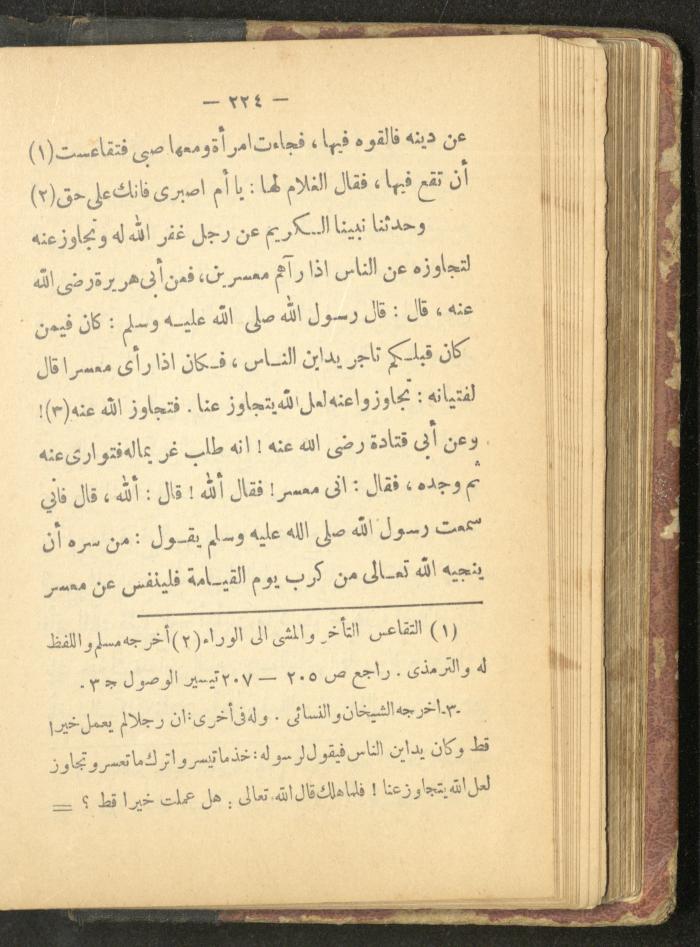 — ٢٢٤ —
عن دينه فالقوه فيها ، فجاءت امرأة ومعها صبى فتقاعست (١)
أن تقع فيها ، فقال الغلام لها : يا أم اصبرى فانك على حق (٢)
وحدثنا نبينا الكريم عن رجل غفر الله له وتجاوز عنه
لتجاوزه عن الناس اذا رآهم معسرين، فعن أبى هريرة رضى الله
عنه ، قال : قال رسول الله صلى الله عليه وسلم : كان فيمن
كان قبلكم تاجر يداين الناس ، فكان اذا رأى معسرا قال
لفتيانه : تجاوزوا عنه لعل الله يتجاوز عنا . فتجاوز الله عنه (٣)!
وعن أبى قتادة رضى الله عنه ! انه طلب غريماله فتوارى عنه
ثم وجده ، فقال : انى معسر ! فقال ألله ! قال : ألله ، قال فاني
سمعت رسول الله صلى الله عليه وسلم يقول : من سره أن
ينجيه الله تعالى من كرب يوم القيامة فلينفس عن معسر
(١) التقاعس التأخر والمشى الى الوراء (٢) أخرجه مسلم واللفظ
له والترمذى . راجع ص ٢٠٥ — ٢٠٧ تيسير الوصول ج ٣ .
-٣- اخرجه الشيخان والنسائى . وله فى أخرى: ان رجلا لم يعمل خيرا
قط وكان يداين الناس فيقول لرسوله : خذ ما تيسر واترك ما تعسر وتجاوز
لعل الله يتجاوز عنا ! فلما هلك قال الله تعالى : هل عملت خيرا قط ؟ =